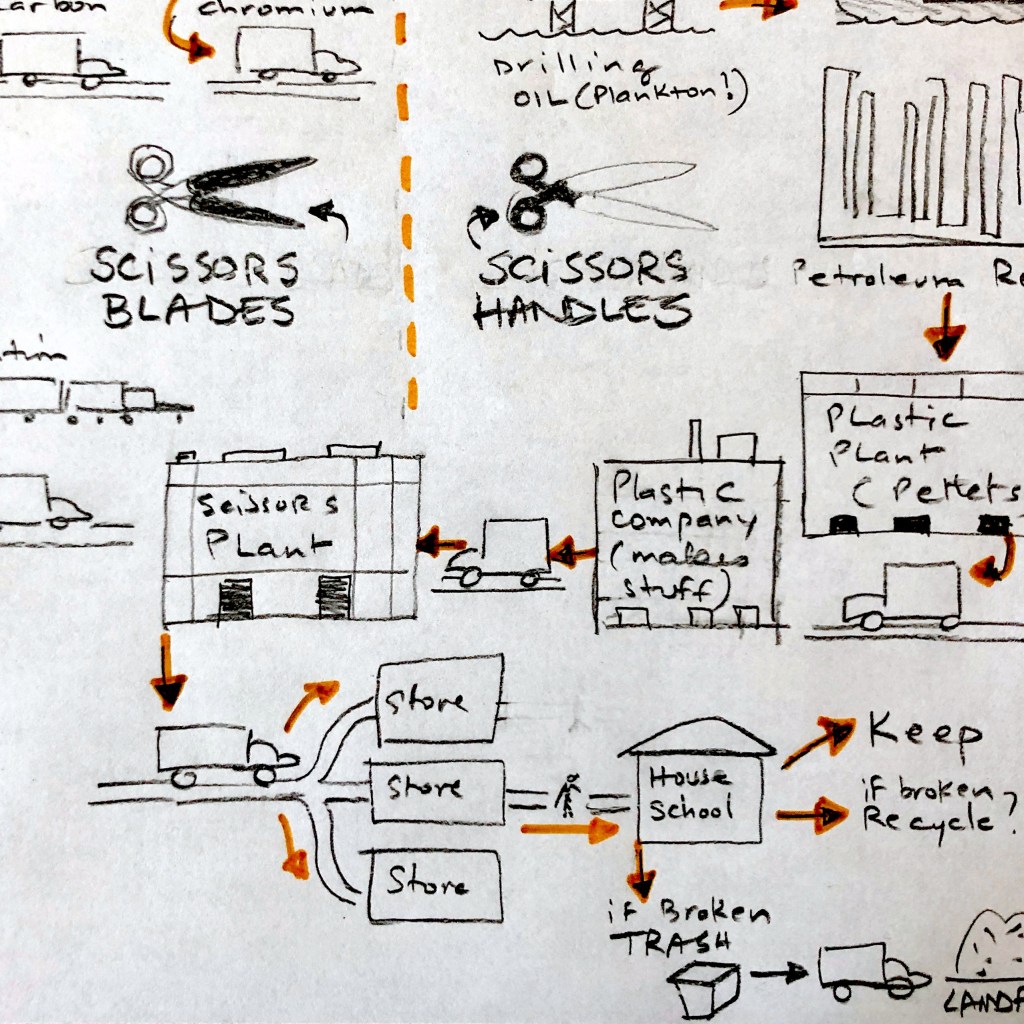 carbon
chromium
Drilling
OIL (Plankton!)
SCISSORS
BLADES
SCISSORS
HANDLES
Petroleum
Plastic
Plant
(Pellets
Scissors
Plant
Plastic
company
(makes
stuff)
Store
Store
Store
House
School
Keep
if broken
Recycle?
if Broken
TRASH